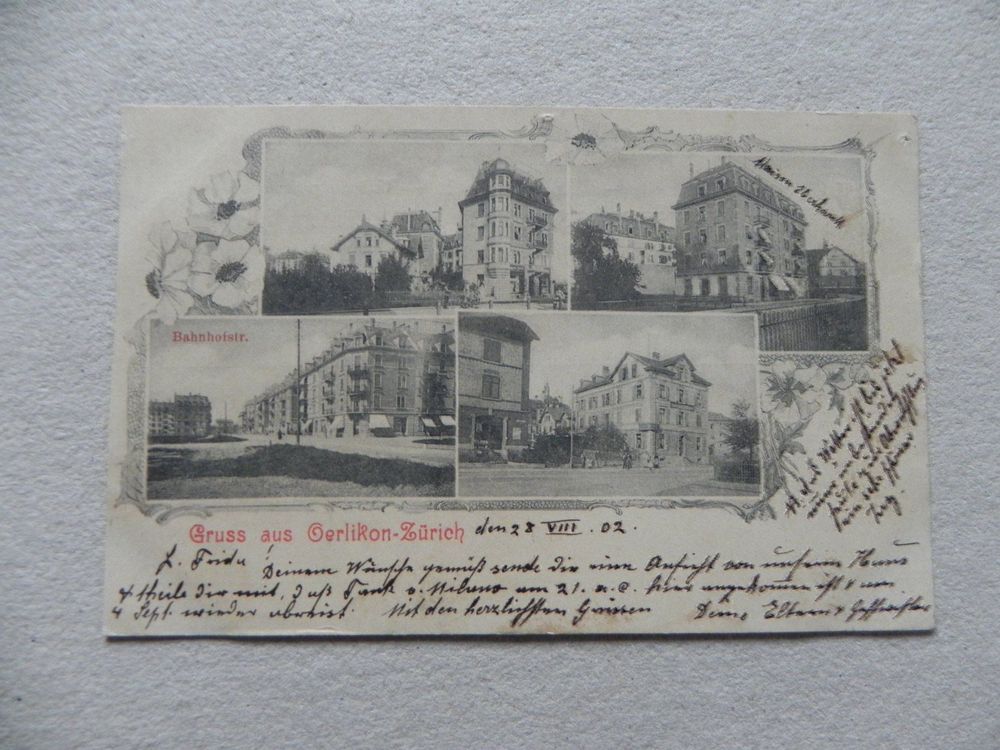 Maison
Bahnhofstr.
Gruss aus Oerlikon-Zürich
den 28 VIII. 02.
L. Frida!
Deinem Wünsche gemäß sende dir eine Ansicht von unserm Haus
& theile dir mit, daß Tante v. Milano am 21. a. c. hier angekommen ist & am
4 Sept. wieder abreist. Mit den herzlichsten Grüssen
Deine Eltern & Geschwister